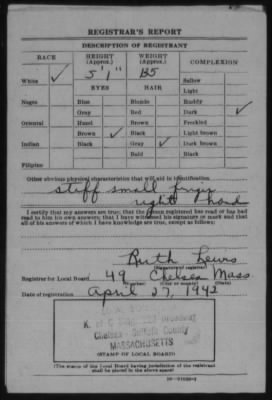 REGISTRAR'S REPORT
DESCRIPTION OF REGISTRANT
RACE HEIGHT (Approx.) WEIGHT (Approx.) COMPLEXION
5' 1" 135
White ✓ Sallow
EYES HAIR Light
Negro Blue Blonde Ruddy
Gray Red Dark ✓
Oriental Hazel Brown Freckled
Brown ✓ Black Light brown
Indian Black Gray ✓ Dark brown
Bald Black
Filipino
Other obvious physical characteristics that will aid in identification
stiff small finger
right hand
I certify that my answers are true; that the person registered has read or has had
read to him his own answers; that I have witnessed his signature or mark and that
all of his answers of which I have knowledge are true, except as follows:
Ruth Lewis
(Signature of registrar)
Registrar for Local Board 49 Chelsea Mass
(Number) (City or county) (State)
Date of registration April 27, 1942
K. of C. Broadway
Chelsea - Suffolk County
MASSACHUSETTS
(STAMP OF LOCAL BOARD)
(The stamp of the Local Board having jurisdiction of the registrant
shall be placed in the above space)